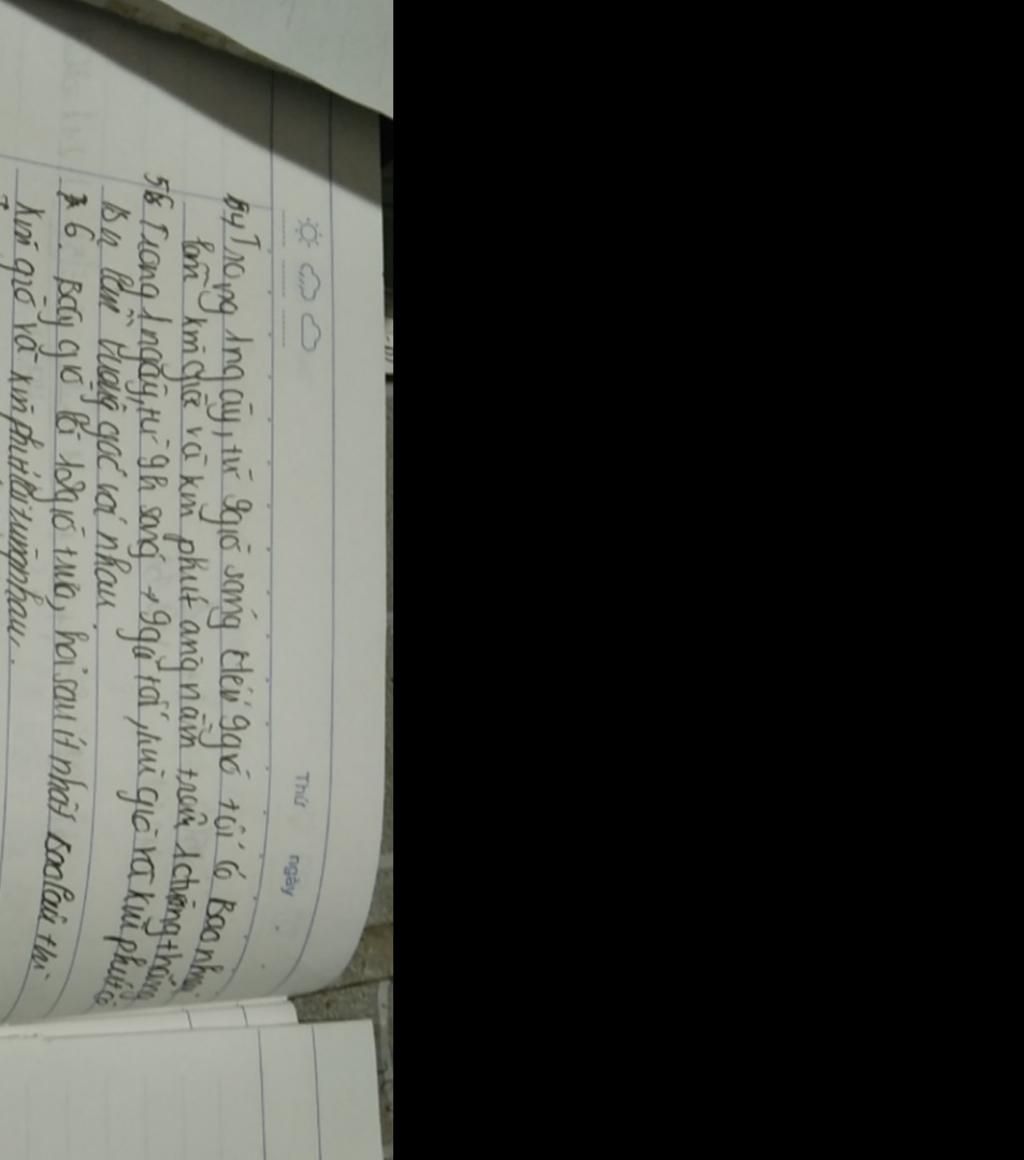 Thứ ngày
4 Trong 1 ngày, từ 9 giờ sáng đến 9 giờ tối có Bao nhiêu
lần kim giờ và kim phút nằm trên 1 đường thẳng
5 Trong 1 ngày, từ 9h sáng → 9 giờ tối, kim giờ và kim phút có
vuông góc với nhau
6. Bây giờ là 12 giờ trưa, hỏi sau ít nhất Bao lâu thì
kim giờ và kim phút lại trùng nhau.